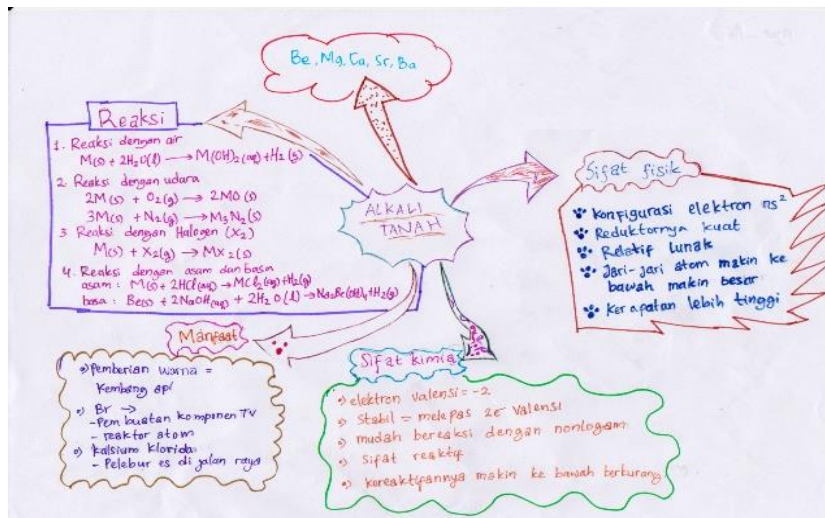 Be, Mg, Ca, Sr, Ba
Reaksi
1. Reaksi dengan air
M(s) + 2H₂O(l) → M(OH)₂(aq) + H₂(g)
2. Reaksi dengan udara
2M(s) + O₂(g) → 2MO(s)
3M(s) + N₂(g) → M₃N₂(s)
3 Reaksi dengan Halogen (X₂)
M(s) + X₂(g) → MX₂(s)
4. Reaksi dengan asam dan basa
asam : M(s) + 2HCl(aq) → MCl₂(aq) + H₂(g)
basa : Be(s) + 2NaOH(aq) + 2H₂O(l) → Na₂Be(OH)₄ + H₂(g)
ALKALI
TANAH
Sifat fisik
Konfigurasi elektron ns²
Reduktornya kuat
Relatif lunak
Jari-jari atom makin ke
bawah makin besar
Kerapatan lebih tinggi
Manfaat
Pemberian warna =
Kembang api
Br →
- Pembuatan komponen TV
- reaktor atom
Kalsium Klorida
- Pelebur es di jalan raya
Sifat kimia
elektron valensi = -2
Stabil = melepas 2e⁻ valensi
mudah bereaksi dengan nonlogam
Sifat reaktif
kereaktifannya makin ke bawah berkurang